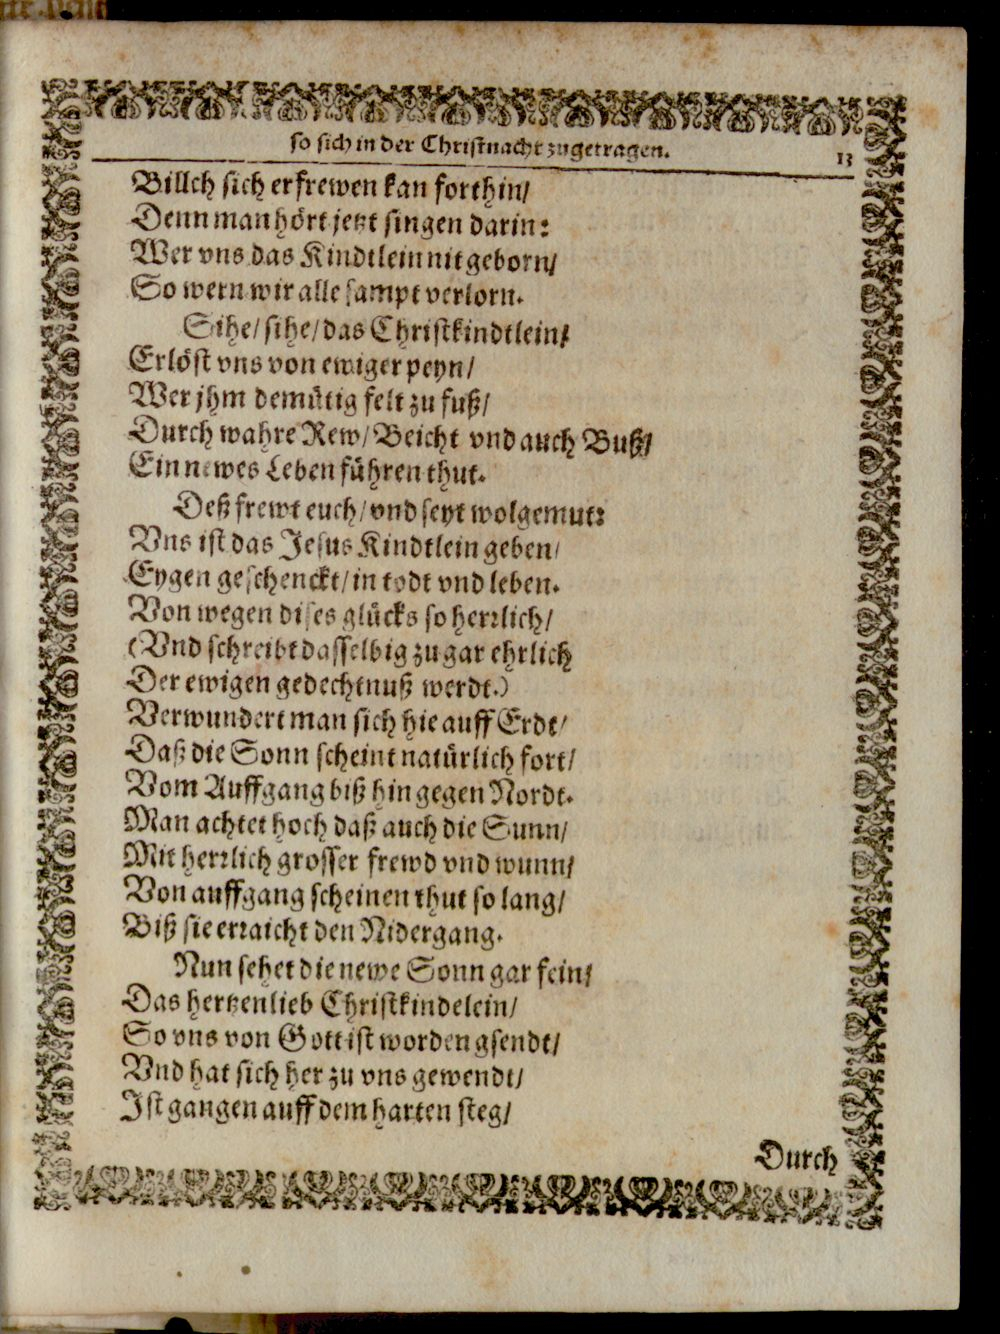 so sich in der Christnacht zugetragen. 13
Billch sich erfrewen kan forthin/
Denn man hört jetzt singen darin:
Wer vns das Kindtlein nit geborn/
So wern wir alle sampt verlorn.
Sihe/ sihe/ das Christkindtlein/
Erlöst vns von ewiger peyn/
Wer jhm demütig felt zu fuß/
Durch wahre Rew/ Beicht vnd auch Buß/
Ein newes Leben führen thut.
Deß frewt euch/ vnd seyt wolgemut:
Vns ist das Jesus Kindtlein geben/
Eygen geschenckt/ in todt vnd leben.
Von wegen dises glücks so herrlich/
(Vnd schreibt dasselbig zu gar ehrlich
Der ewigen gedechtnuß werdt.)
Verwundert man sich hie auff Erdt/
Daß die Sonn scheint natürlich fort/
Vom Auffgang biß hin gegen Nordt.
Man achtet hoch daß auch die Sunn/
Mit herrlich grosser frewd vnd wunn/
Von auffgang scheinen thut so lang/
Biß sie erraicht den Nidergang.
Nun sehet die newe Sonn gar fein/
Das hertzenlieb Christkindelein/
So vns von Gott ist worden gsendt/
Vnd hat sich her zu vns gewendt/
Ist gangen auff dem harten steg/
Durch